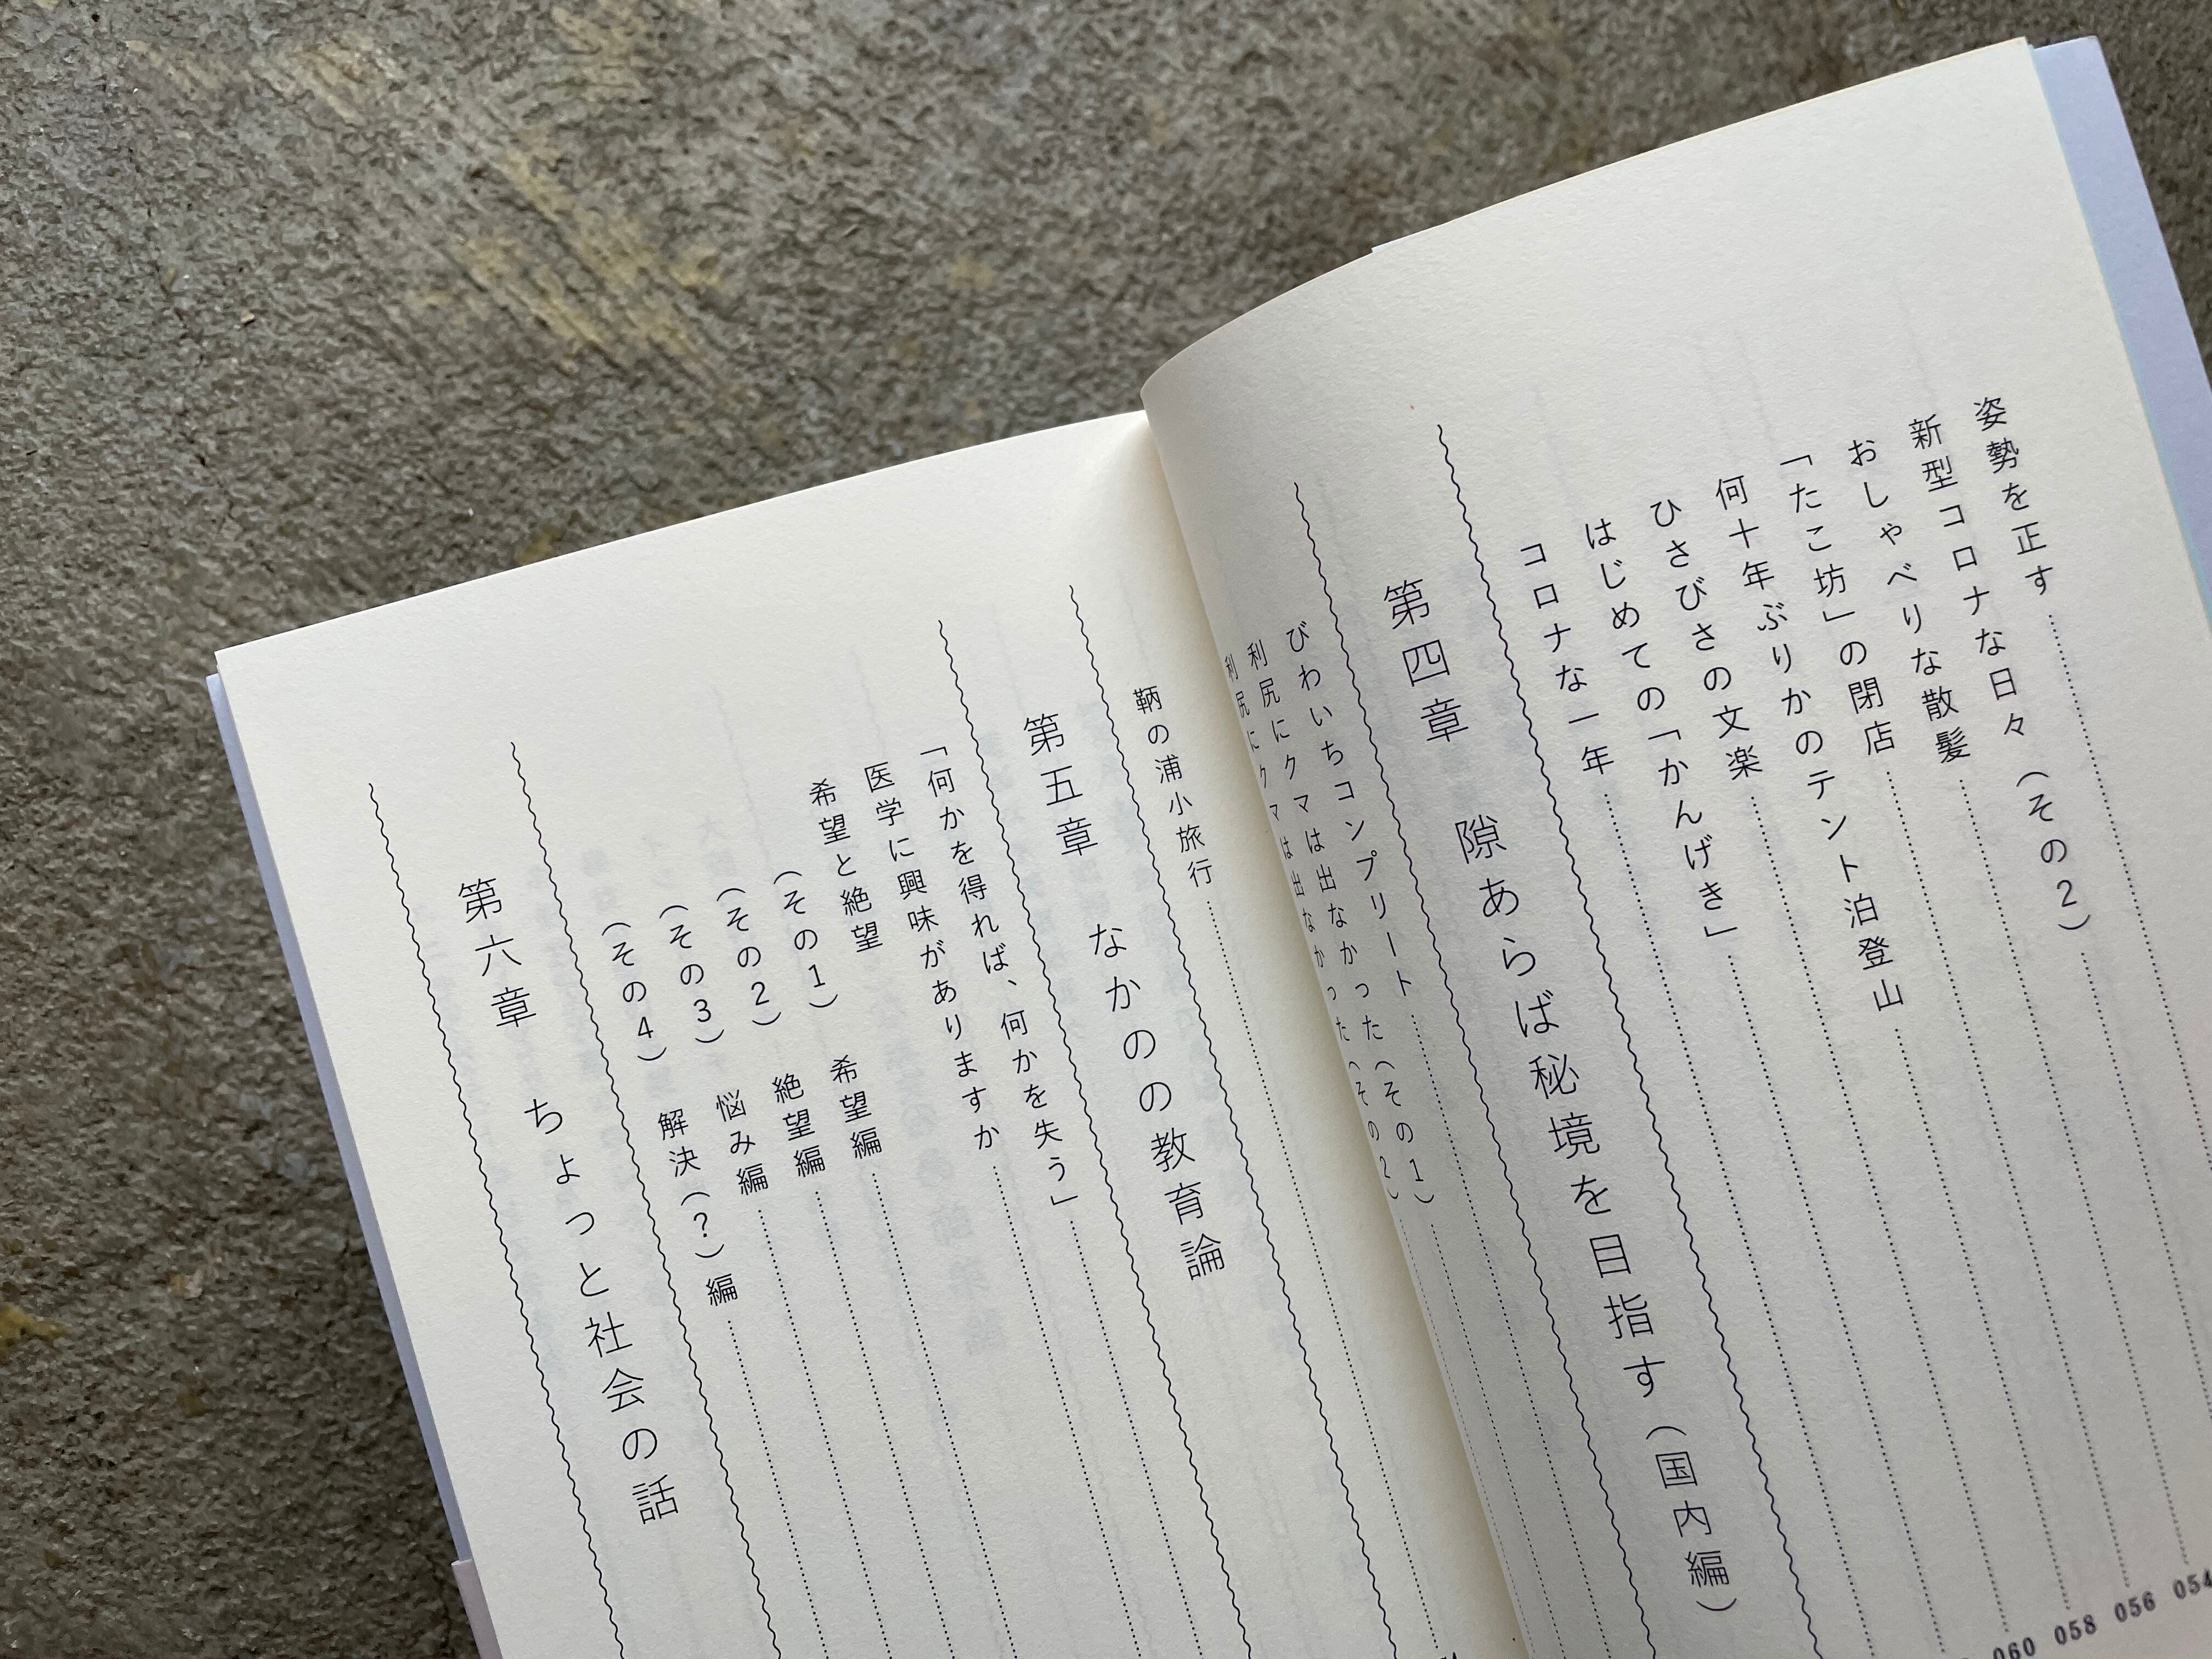 姿勢を正す
054
新型コロナな日々(その2)
056
おしゃべりな散髪
058
「たこ坊」の閉店
060
何十年ぶりかのテント泊登山
ひさびさの文楽
はじめての「かんげき」
コロナな一年
第四章 隙あらば秘境を目指す(国内編)
びわいちコンプリート
利尻にクマは出なかった(その1)
利尻にクマは出なかった(その2)
鞆の浦小旅行
第五章 なかのの教育論
「何かを得れば、何かを失う」
医学に興味がありますか
希望と絶望
(その1) 希望編
(その2) 絶望編
(その3) 悩み編
(その4) 解決(?)編
第六章 ちょっと社会の話